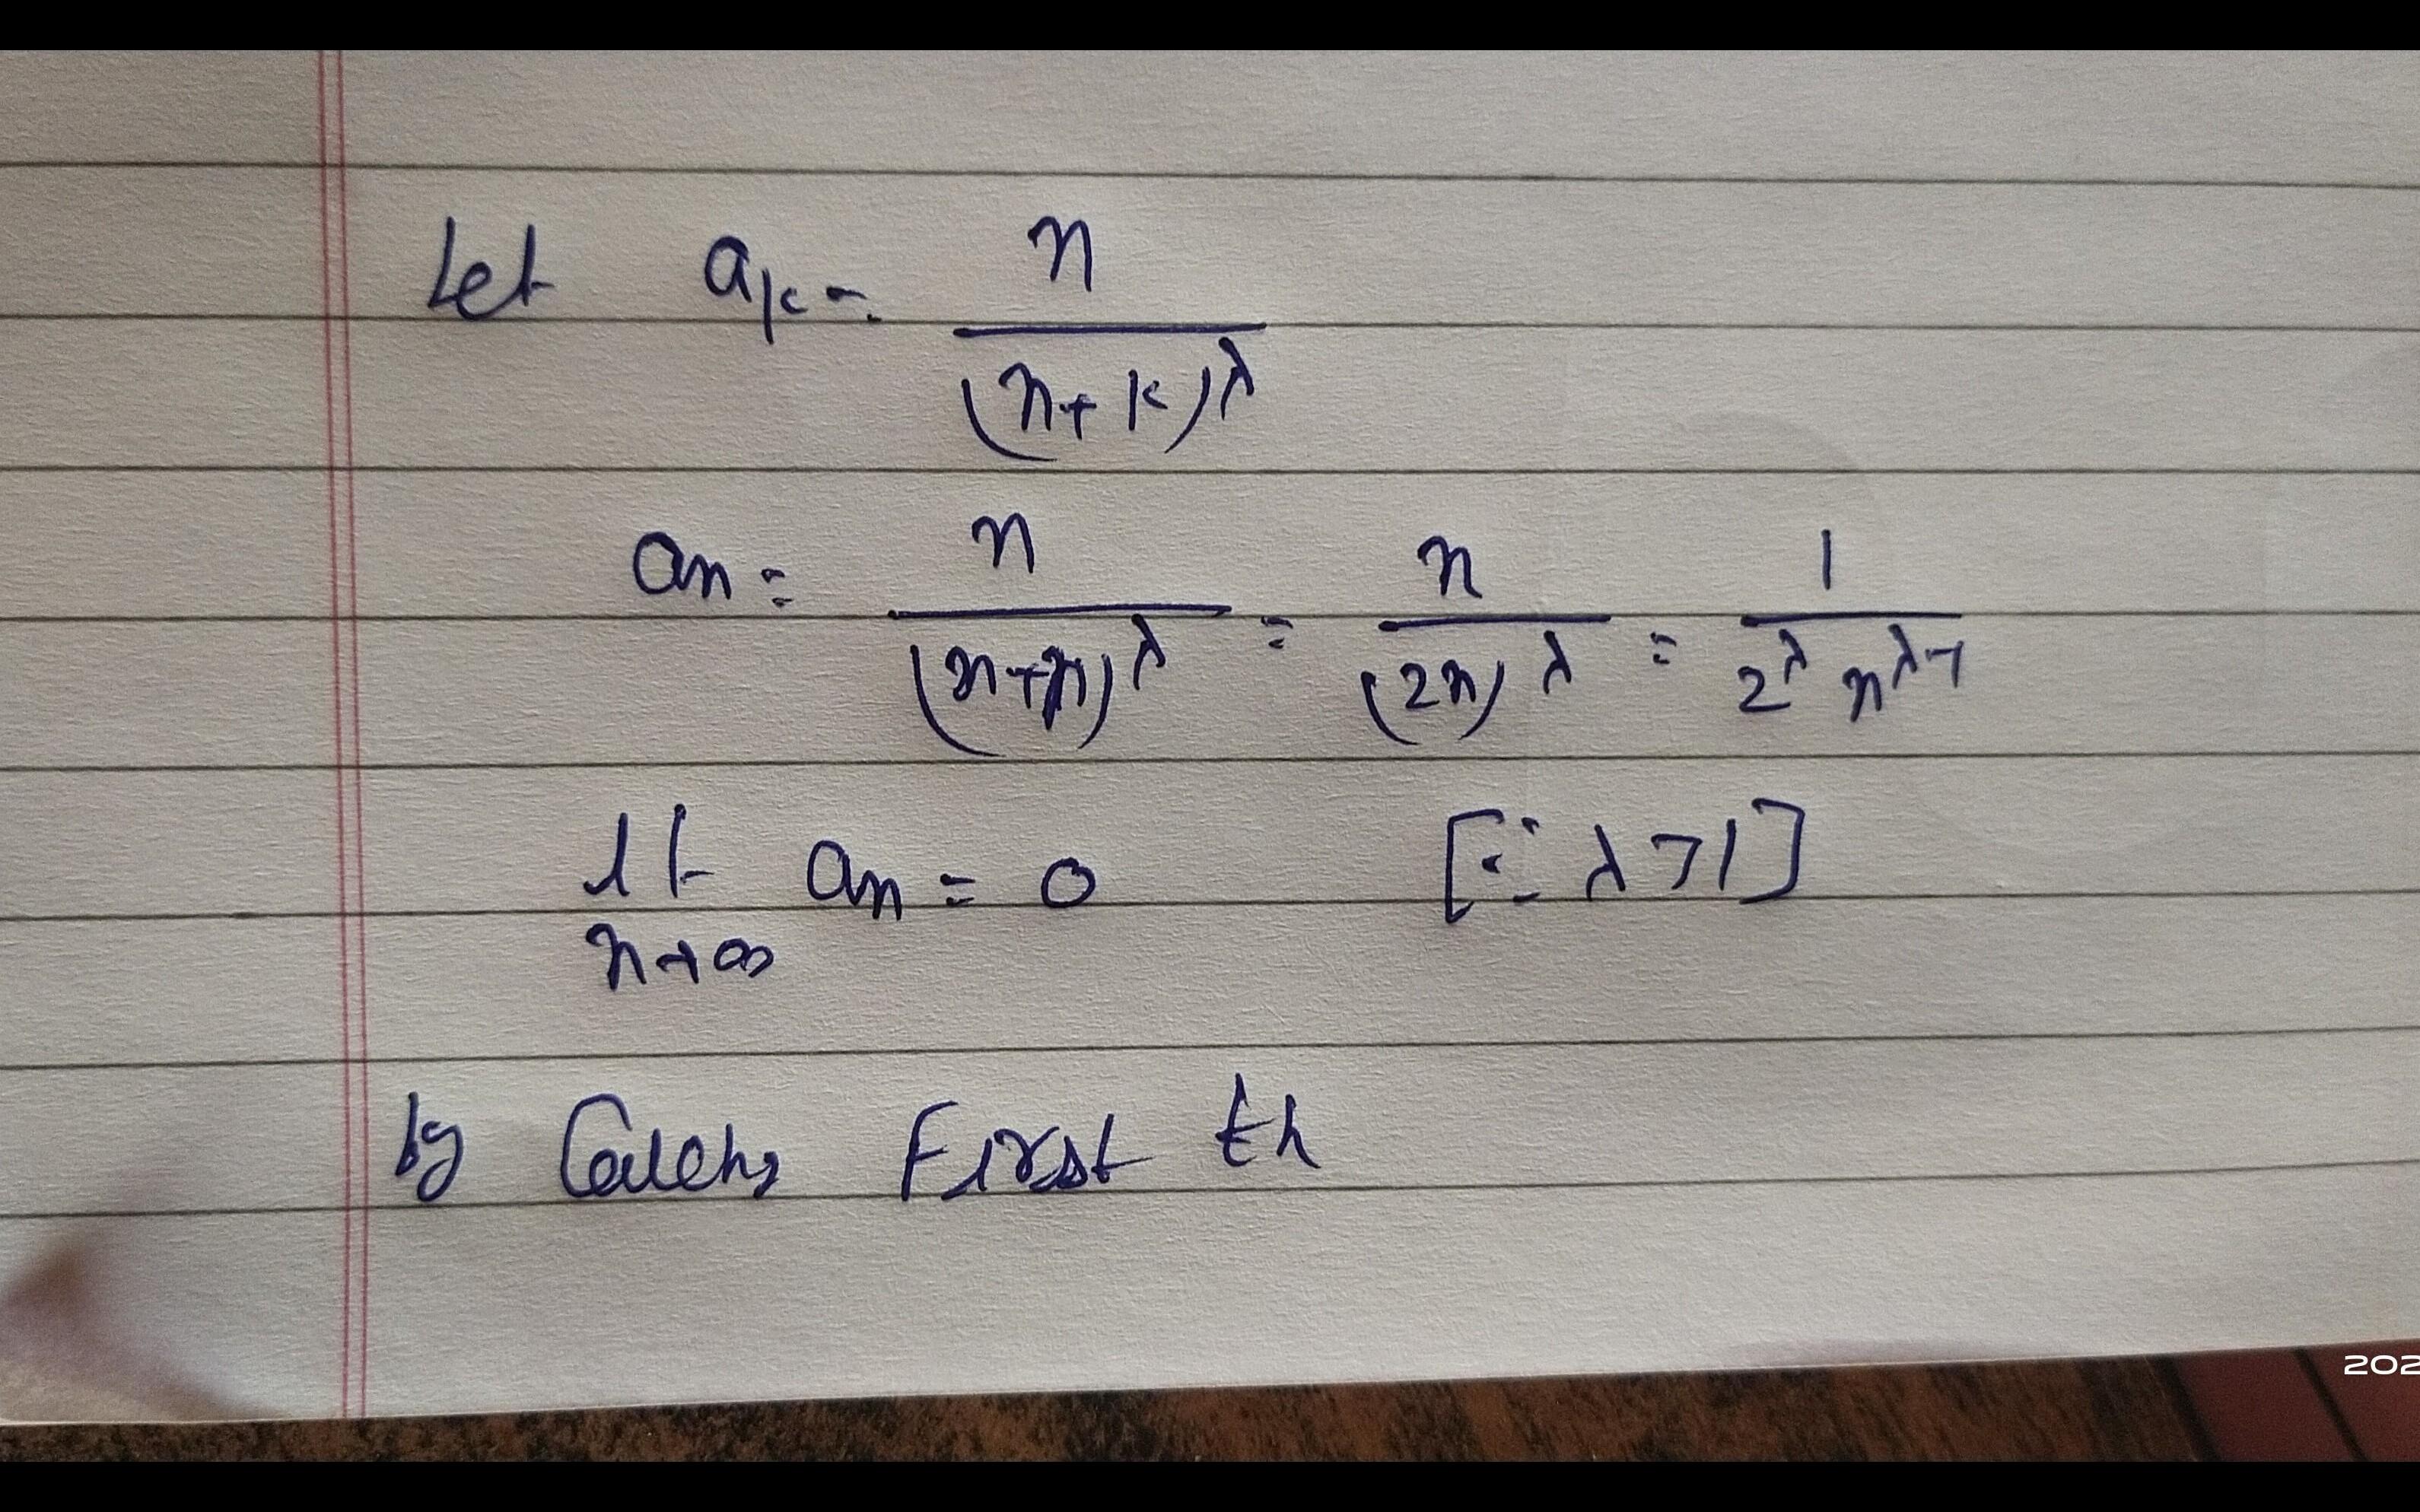 Let a_k = n / (n+k)^λ
a_n = n / (n+n)^λ = n / (2n)^λ = 1 / 2^λ n^{λ-1}
lt n→∞ a_n = 0 [∵ λ > 1]
by First th
202